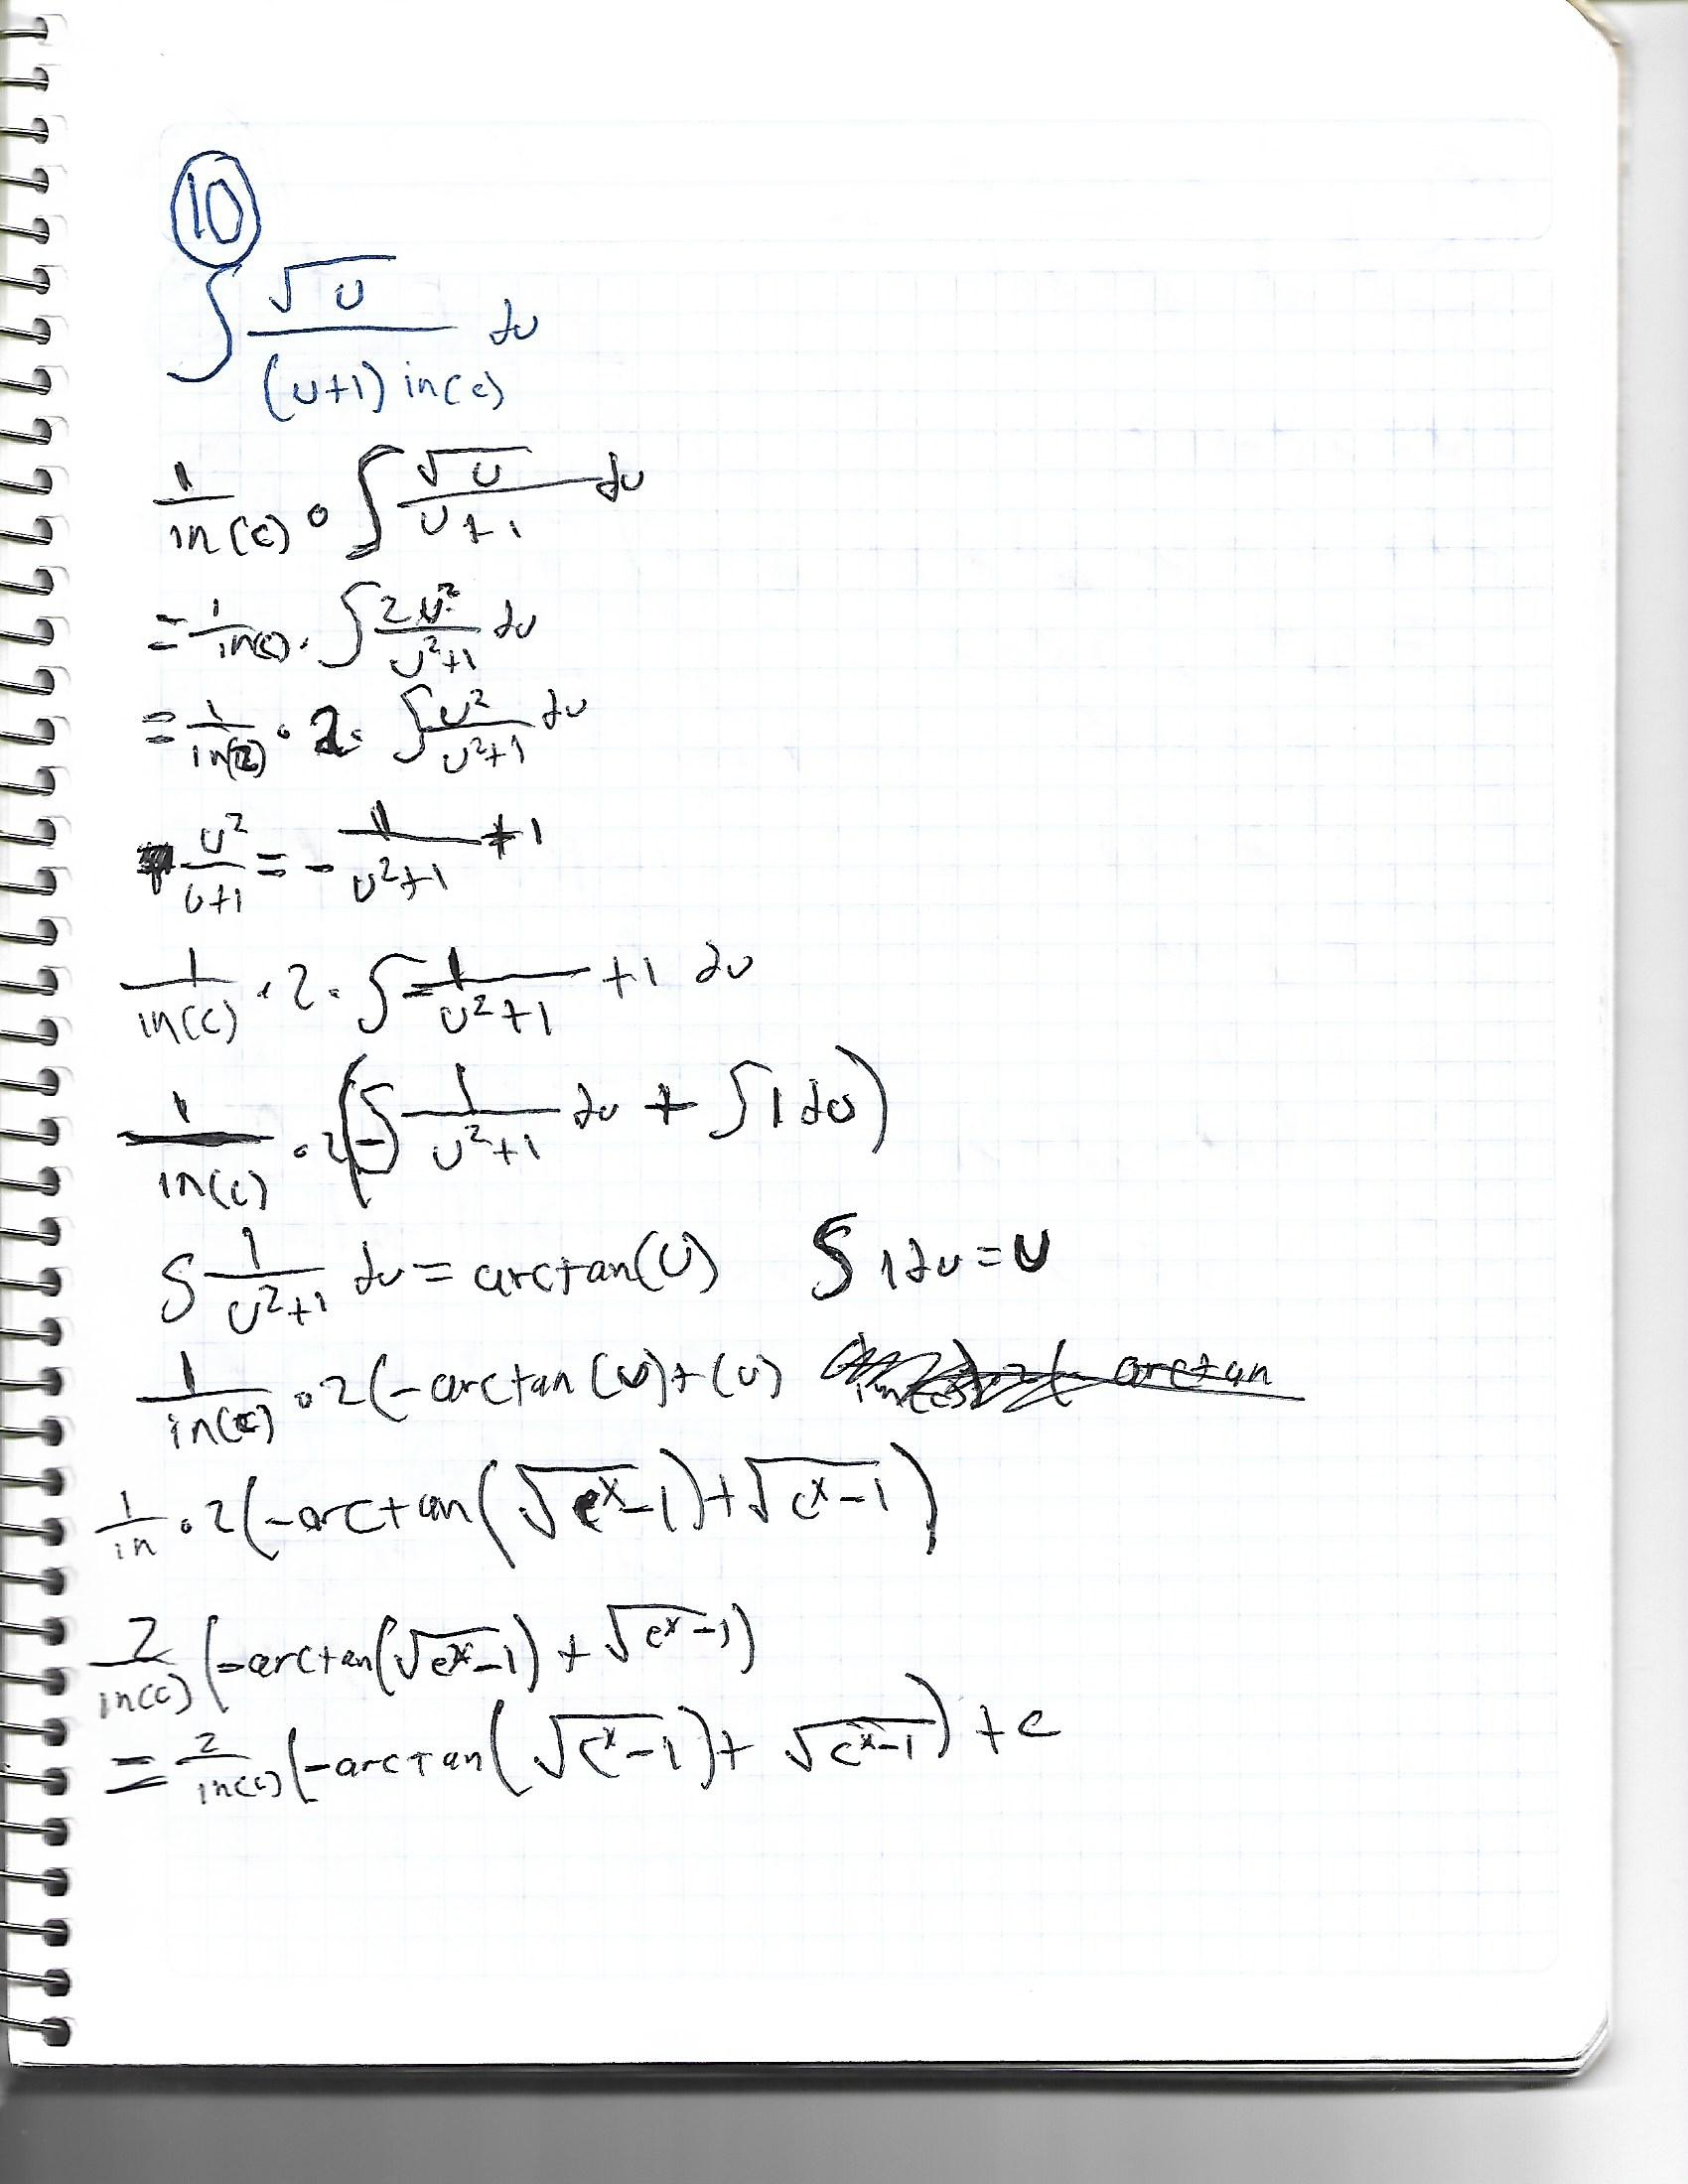 10
∫ √u / (u+1) in(c) du
1/in(c) · ∫ √u / u+1 du
= 1/in(c) · ∫ 2u² / u²+1 du
= 1/in(2) · 2 · ∫ u² / u²+1 du
u² / u+1 = - 1 / u²+1 + 1
1/in(c) · 2 · ∫ - 1 / u²+1 + 1 du
1/in(c) · 2 (-∫ 1 / u²+1 du + ∫ 1 du)
∫ 1 / u²+1 du = arctan(u) ∫ 1 du = u
1/in(c) · 2 (-arctan(u)+(u)
1/in · 2 (-arctan(√c^x-1)+√c^x-1)
2/in(c) (-arctan(√c^x-1) + √c^x-1)
= 2/in(c) (-arctan(√c^x-1) + √c^x-1) + c